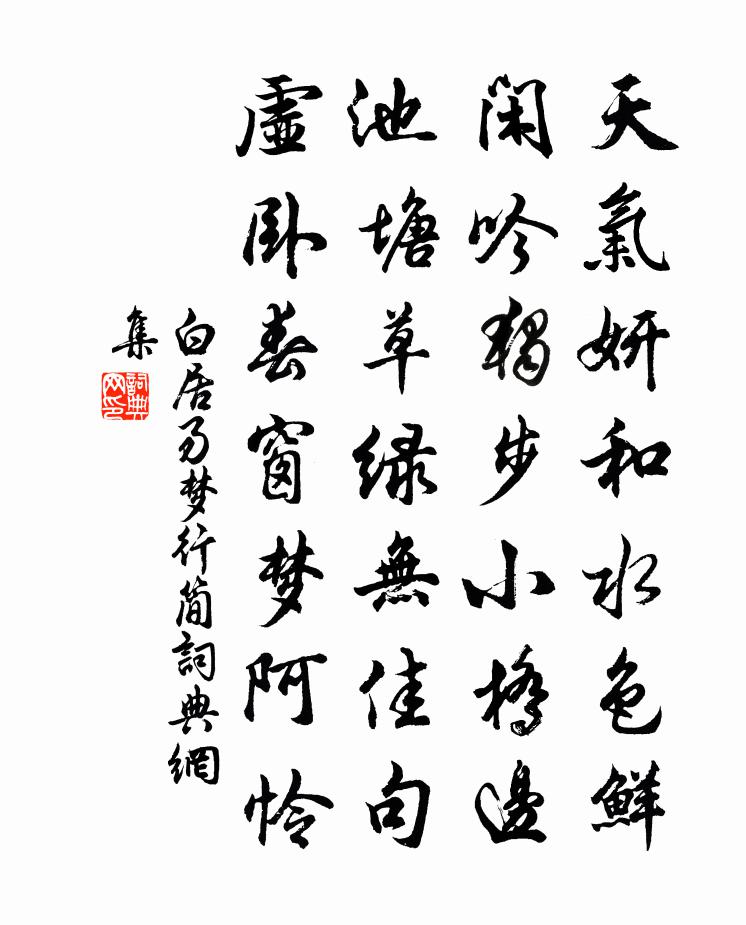 天氣妍和水色鮮
閑吟獨步小橋邊
池塘草緑無佳句
虛臥春窗梦阿怜
白居易梦行简詞典網
集
詞典
网印